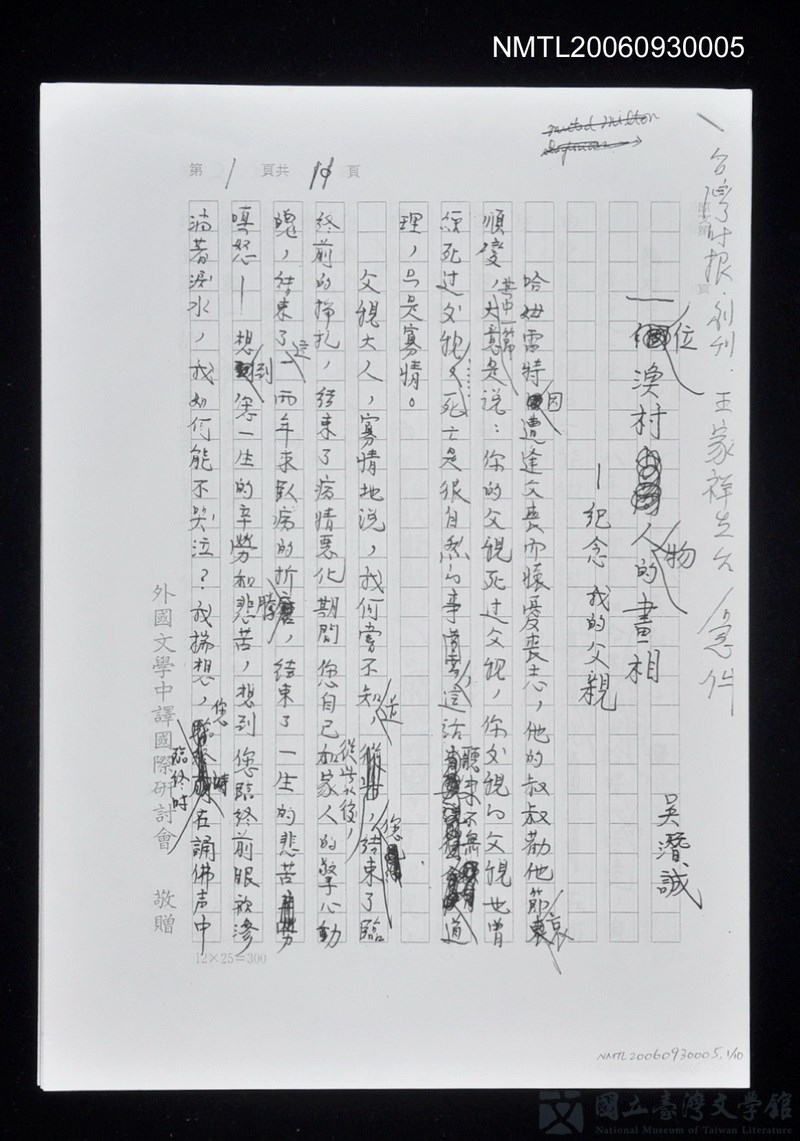 NMTL20060930005
台灣時報.創刊.王家祥先生 急件
第1頁共 頁
一位漁村人物的畫相
—紀念我的父親
吳潛誠
哈姆雷特因遭逢父喪而懷憂喪志,他的叔叔勸他節哀
順變,其中一篇大意是说:你的父親死过父親,你父親的父親也曾
經死过父親……死亡是很自然的事,這话聽来不無道
理,只是寡情。
父親大人,寡情地说,我何嘗不知道,從此以後,您結束了臨
終前的掙扎,結束了病情惡化期間您自己和家人的擎心動
魄,結束了這一两年来臥病的折磨,結束了一生的悲苦
嗔怒—想到您一生的辛勞和悲苦,想到您臨終前眼欲滲
淌著淚水,我如何能不哭泣?我揣想,您臨終時在誦佛声中
12×25=300
外國文學中譯國際研討會 敬贈
NMTL20060930005.1/10
國立臺灣文學館
National Museum of Taiwan Literature